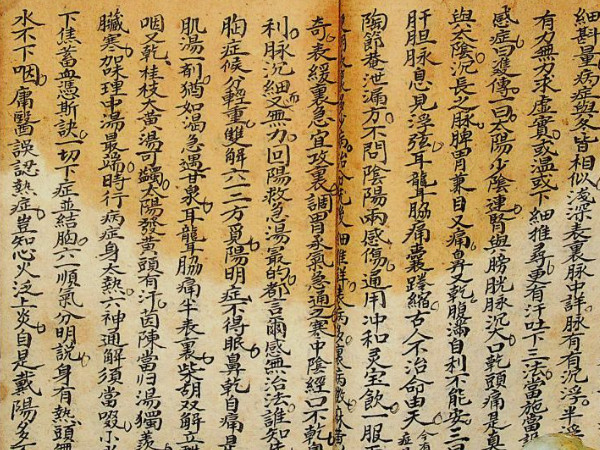 細斟量病症與冬皆相似淺深表裏脉中詳脉有有沉浮半遲
有力無力求虛實或温或下細推尋更有汗吐下三法當施當
感症曰雙傳一曰太陽少陰連腎與膀胱脉沉人口乾頭痛是真
與太陰沉長之脉脾胃兼目又痛鼻乾腹滿自利不能安三曰
肝胆脉息見浮弦耳聾脇痛囊蹄縮古人不治命由天
陶節菴泄漏方不問陰陽兩感傷通用沖和灵宝飲一服
奇表緩裏急宜攻裏調胃承氣急通之寒中陰經口不乾
利脉沉細而又無力回陽救急湯最的都言兩感無治法誰知
胸症候分輕重雙解六一二方覓陽明症不得眠鼻乾目痛是
肌湯一剤猶如渴急遇甘泉耳聾脇痛半表裏柴胡双解立
咽又乾桂枝大黄湯可蠲太陽發黄頭有汗茵陳當归湯獨羨
臟寒加味理中湯最端時行病症身太熱六神通解須當啜
下焦蓄血憑斯訣一切下症並結胸六一順氣分明說身有熱頭
水不下咽庸醫誤認熱症豈知心火泛上炎自是戴陽多